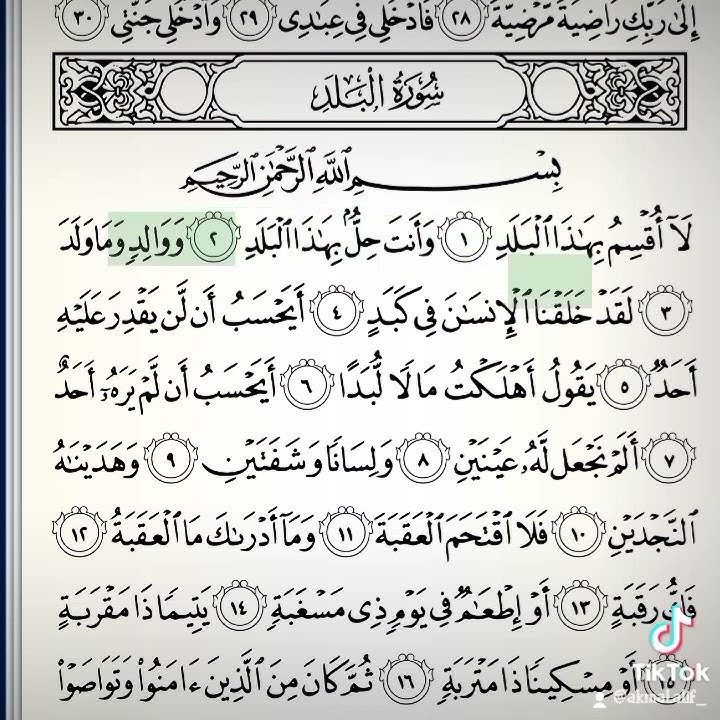 إِلَىٰ رَبِّكِ رَاضِيَةً مَّرْضِيَّةً ٢٨ فَادْخُلِي فِي عِبَادِي ٢٩ وَادْخُلِي جَنَّتِي ٣٠
سُورَةُ الْبَلَدِ
بِسْمِ اللَّهِ الرَّحْمَٰنِ الرَّحِيمِ
لَا أُقْسِمُ بِهَٰذَا الْبَلَدِ ١ وَأَنتَ حِلٌّ بِهَٰذَا الْبَلَدِ ٢ وَوَالِدٍ وَمَا وَلَدَ
٣ لَقَدْ خَلَقْنَا الْإِنسَانَ فِي كَبَدٍ ٤ أَيَحْسَبُ أَن لَّن يَقْدِرَ عَلَيْهِ
أَحَدٌ ٥ يَقُولُ أَهْلَكْتُ مَالًا لُّبَدًا ٦ أَيَحْسَبُ أَن لَّمْ يَرَهُ أَحَدٌ
٧ أَلَمْ نَجْعَل لَّهُ عَيْنَيْنِ ٨ وَلِسَانًا وَشَفَتَيْنِ ٩ وَهَدَيْنَاهُ
النَّجْدَيْنِ ١٠ فَلَا اقْتَحَمَ الْعَقَبَةَ ١١ وَمَا أَدْرَاكَ مَا الْعَقَبَةُ ١٢
فَكُّ رَقَبَةٍ ١٣ أَوْ إِطْعَامٌ فِي يَوْمٍ ذِي مَسْغَبَةٍ ١٤ يَتِيمًا ذَا مَقْرَبَةٍ
١٥ أَوْ مِسْكِينًا ذَا مَتْرَبَةٍ ١٦ ثُمَّ كَانَ مِنَ الَّذِينَ ءَامَنُوا وَتَوَاصَوْا
TikTok
@akmal.alif_